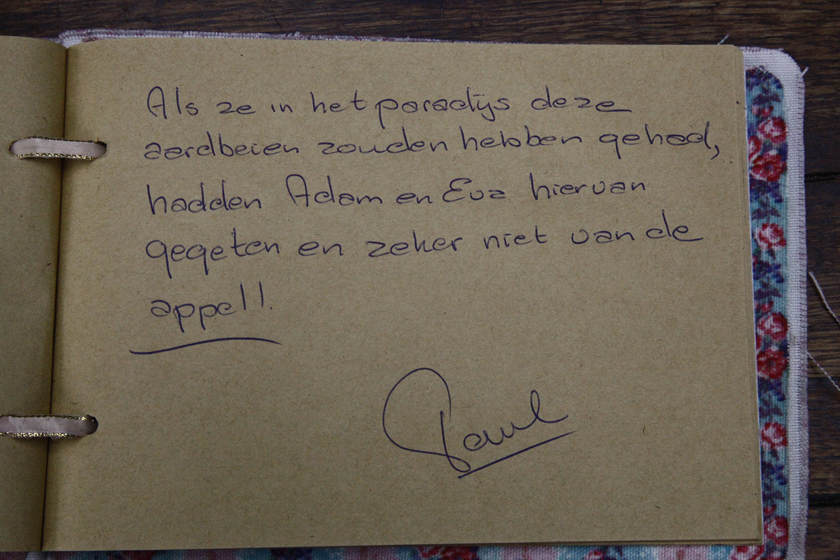 Als ze in het paradijs deze
aardbeien zouden hebben gehad,
hadden Adam en Eva hiervan
gegeten en zeker niet van de
appel!
Paul